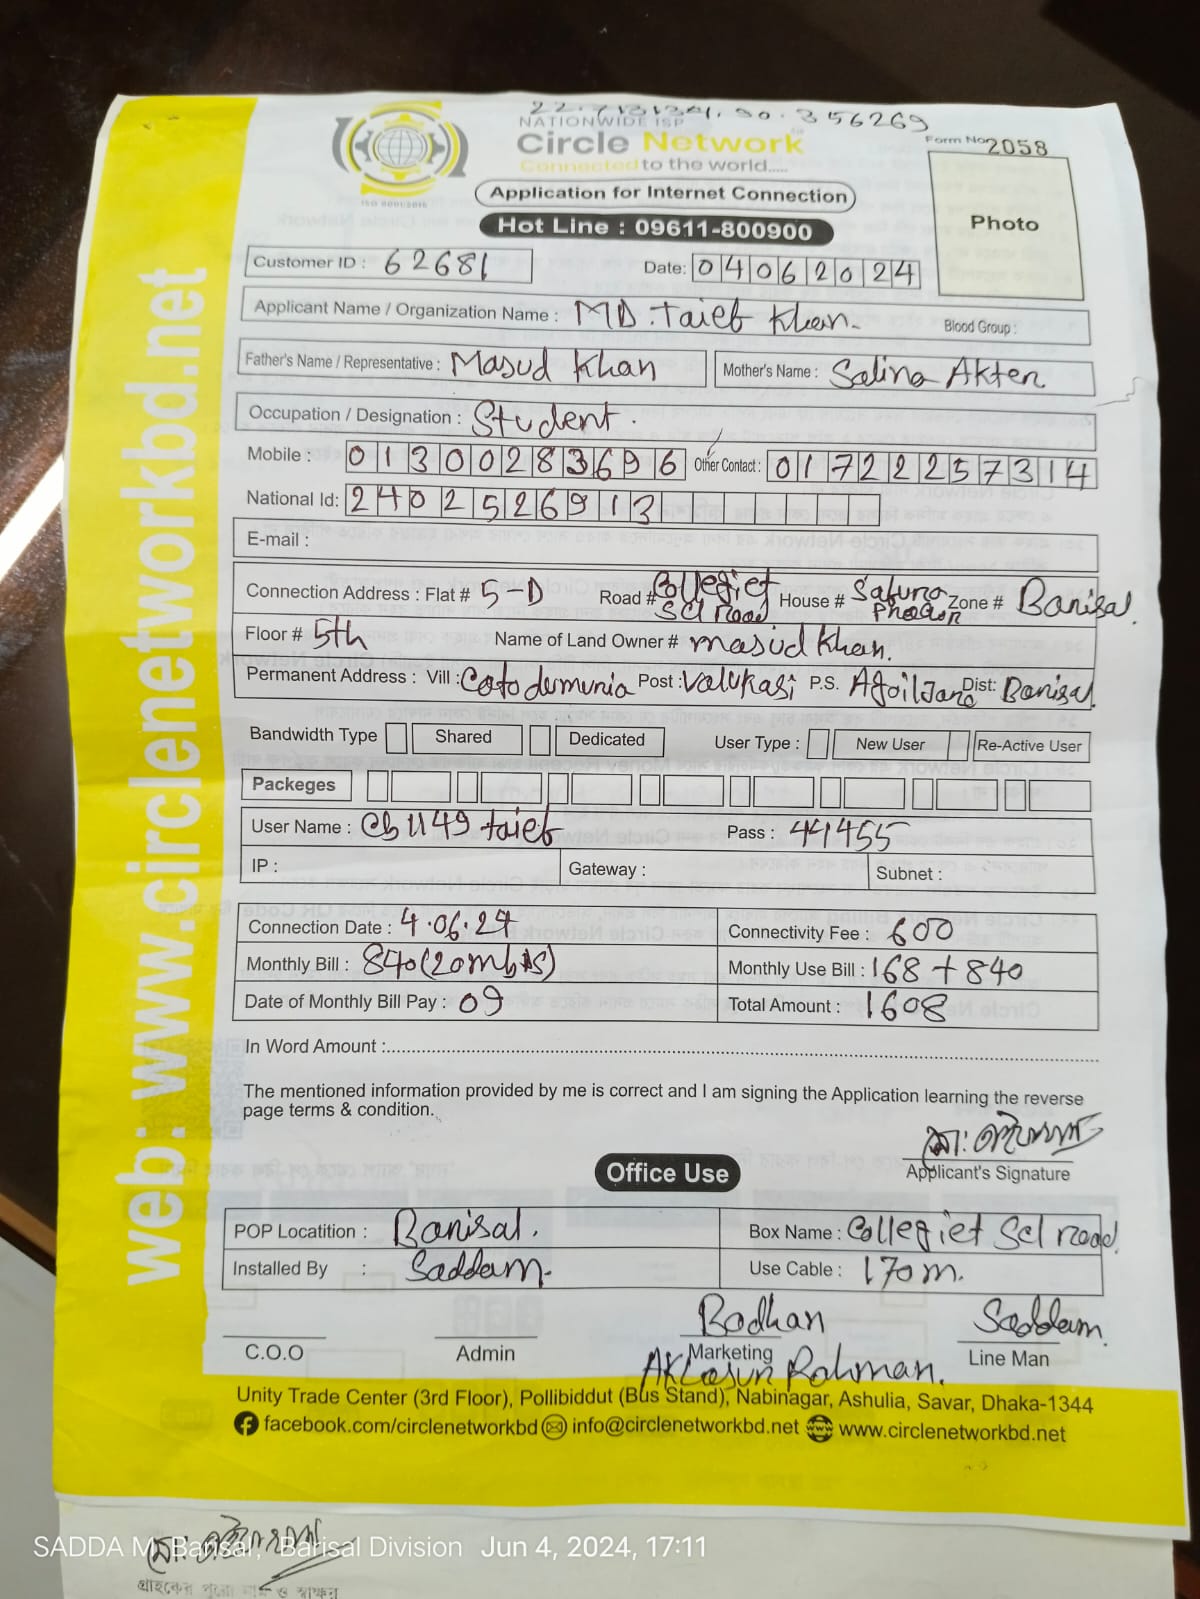 22.713134, 90.356269
NATIONWIDE ISP
Circle Network
Connected to the world.....
ISO 9001:2015
Form No 2058
Application for Internet Connection
Hot Line : 09611-800900
Photo
Customer ID : 62681 Date: 04062024
Applicant Name / Organization Name : MD. Taieb Khan. Blood Group :
Father's Name / Representative : Masud Khan Mother's Name : Salina Akter
Occupation / Designation : Student.
Mobile : 01300283696 Other Contact : 01722257314
National Id: 2402526913
E-mail :
Connection Address : Flat # 5-D Road # Collegiet Scl road House # Zone # Barisal.
Floor # 5th Name of Land Owner # masud Khan.
Permanent Address : Vill : Post : P.S. Dist: Barisal
Bandwidth Type Shared Dedicated User Type : New User Re-Active User
Packeges
User Name : cb1149taieb Pass : 44455
IP : Gateway : Subnet :
Connection Date : 4.06.24 Connectivity Fee : 600
Monthly Bill : 840(20mbps) Monthly Use Bill : 168 + 840
Date of Monthly Bill Pay : 09 Total Amount : 1608
In Word Amount :
The mentioned information provided by me is correct and I am signing the Application learning the reverse
page terms & condition.
Applicant's Signature
Office Use
POP Locatition : Barisal. Box Name : Collegiet Scl road
Installed By : Saddam. Use Cable : 170m.
Badhan Saddam.
C.O.O Admin Marketing Line Man
Rahman.
Unity Trade Center (3rd Floor), Pollibiddut (Bus Stand), Nabinagar, Ashulia, Savar, Dhaka-1344
facebook.com/circlenetworkbd info@circlenetworkbd.net www.circlenetworkbd.net
web: www.circlenetworkbd.net
SADDA M, Barisal, Barisal Division Jun 4, 2024, 17:11
গ্রাহকের পুরো নাম ও স্বাক্ষর